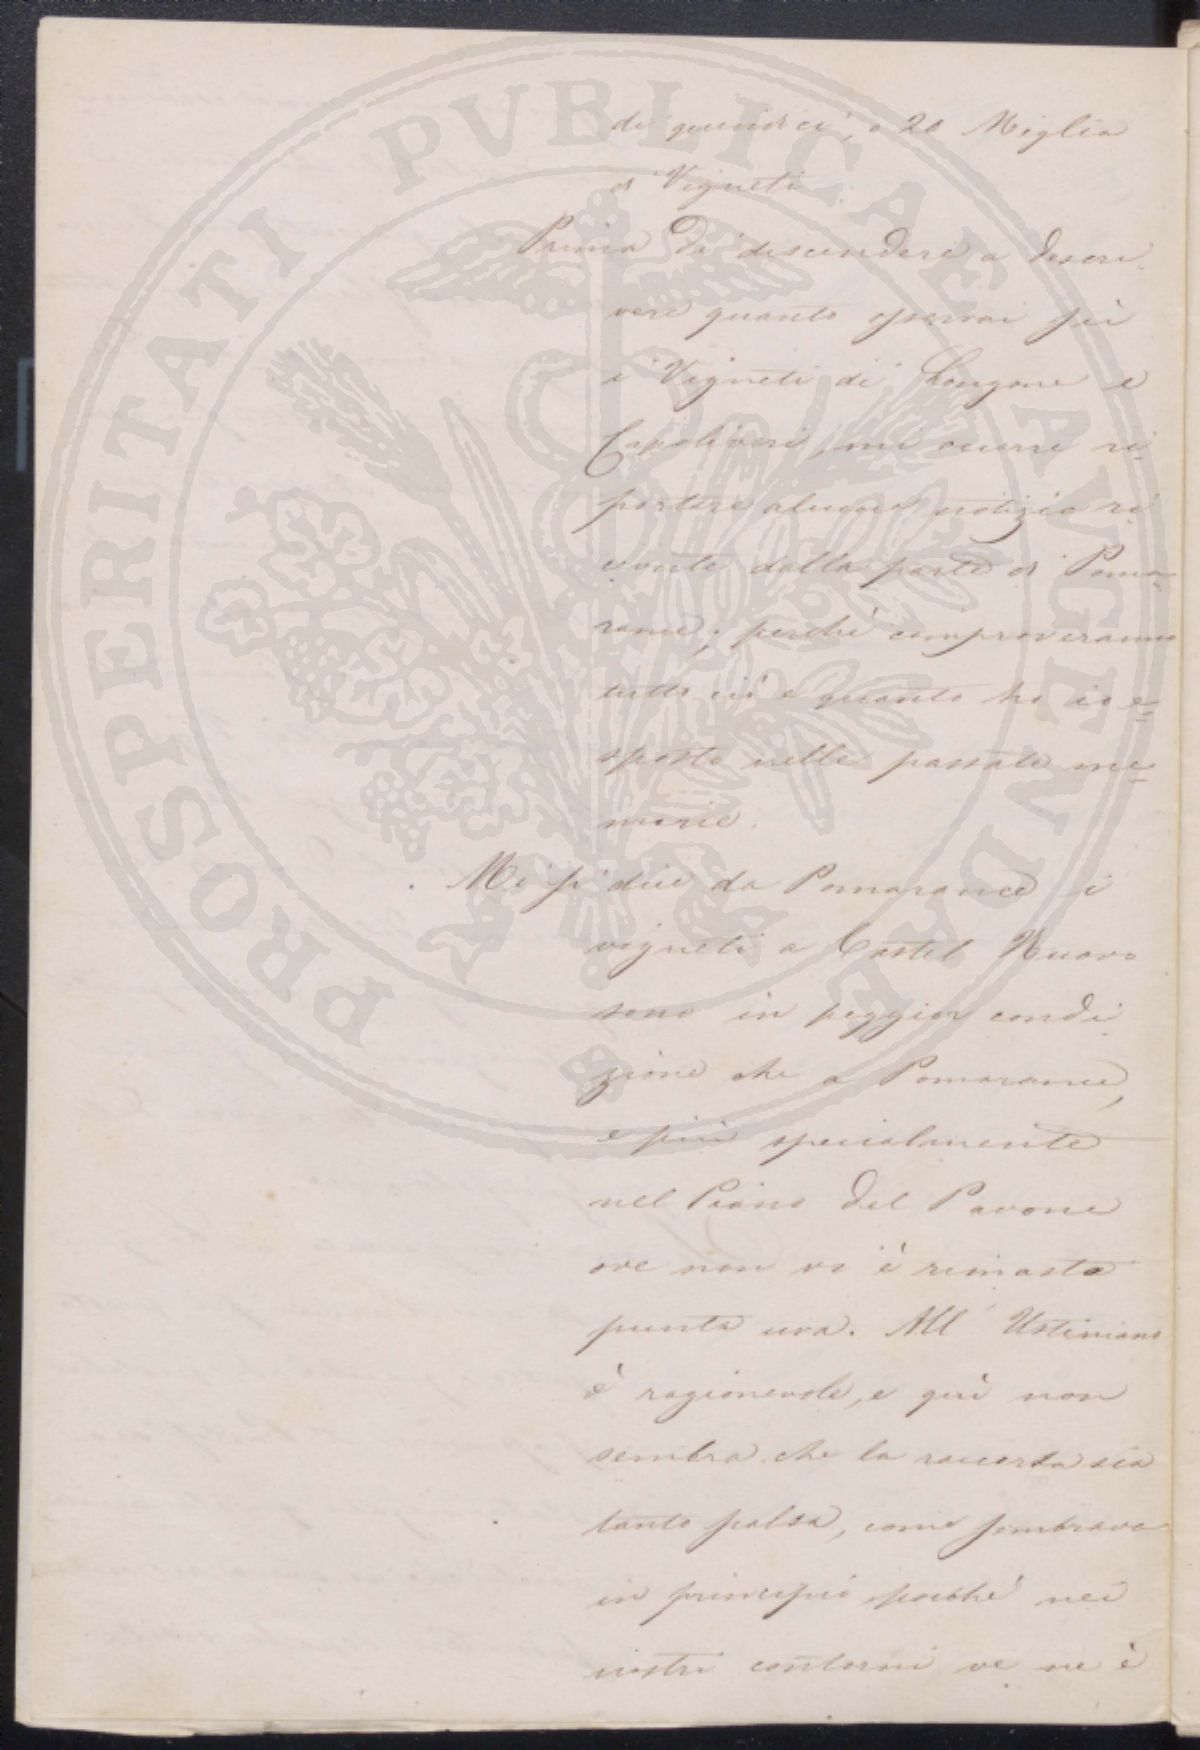 di quindici, o 20 Miglia
di Vigneti.
Prima di discendere a descri-
vere quanto osservai per
i Vigneti di Longone e
Capoliveri, mi occorre ri-
portare alcune notizie ri-
cevute dalla parte di Poma-
rance; perché comproveranno
tutto ciò e quanto ho io e-
sposto nelle passate me-
morie.
Mi si dice da Pomarance i
vigneti a Castel Nuovo
sono in peggior condi-
zione che a Pomarance,
e più specialmente
nel Piano del Pavone
ove non vi è rimasta
punta uva. All' Ustiniano
è ragionevole, e quì non
sembra che la raccolta sia
tanto falsa, come sembrava
in principio poiché nei
nostri contorni ve ne è
PROSPERITATI PVBLICAE AVGENDAE